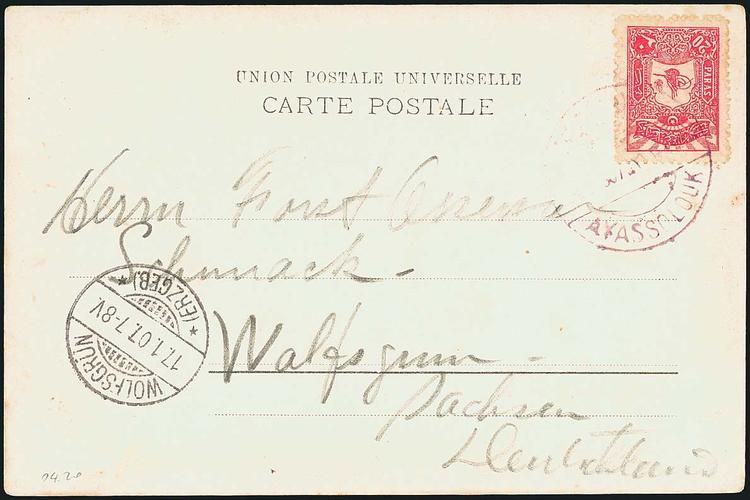 UNION POSTALE UNIVERSELLE
CARTE POSTALE
20 PARAS
AYASSOLOUK
Herrn Forst Assessor
Schmack -
Wolfsgrün -
Sachsen
Deutschland
WOLFSGRÜN
17.1.07.7-8V.
*(ERZGEB.)*